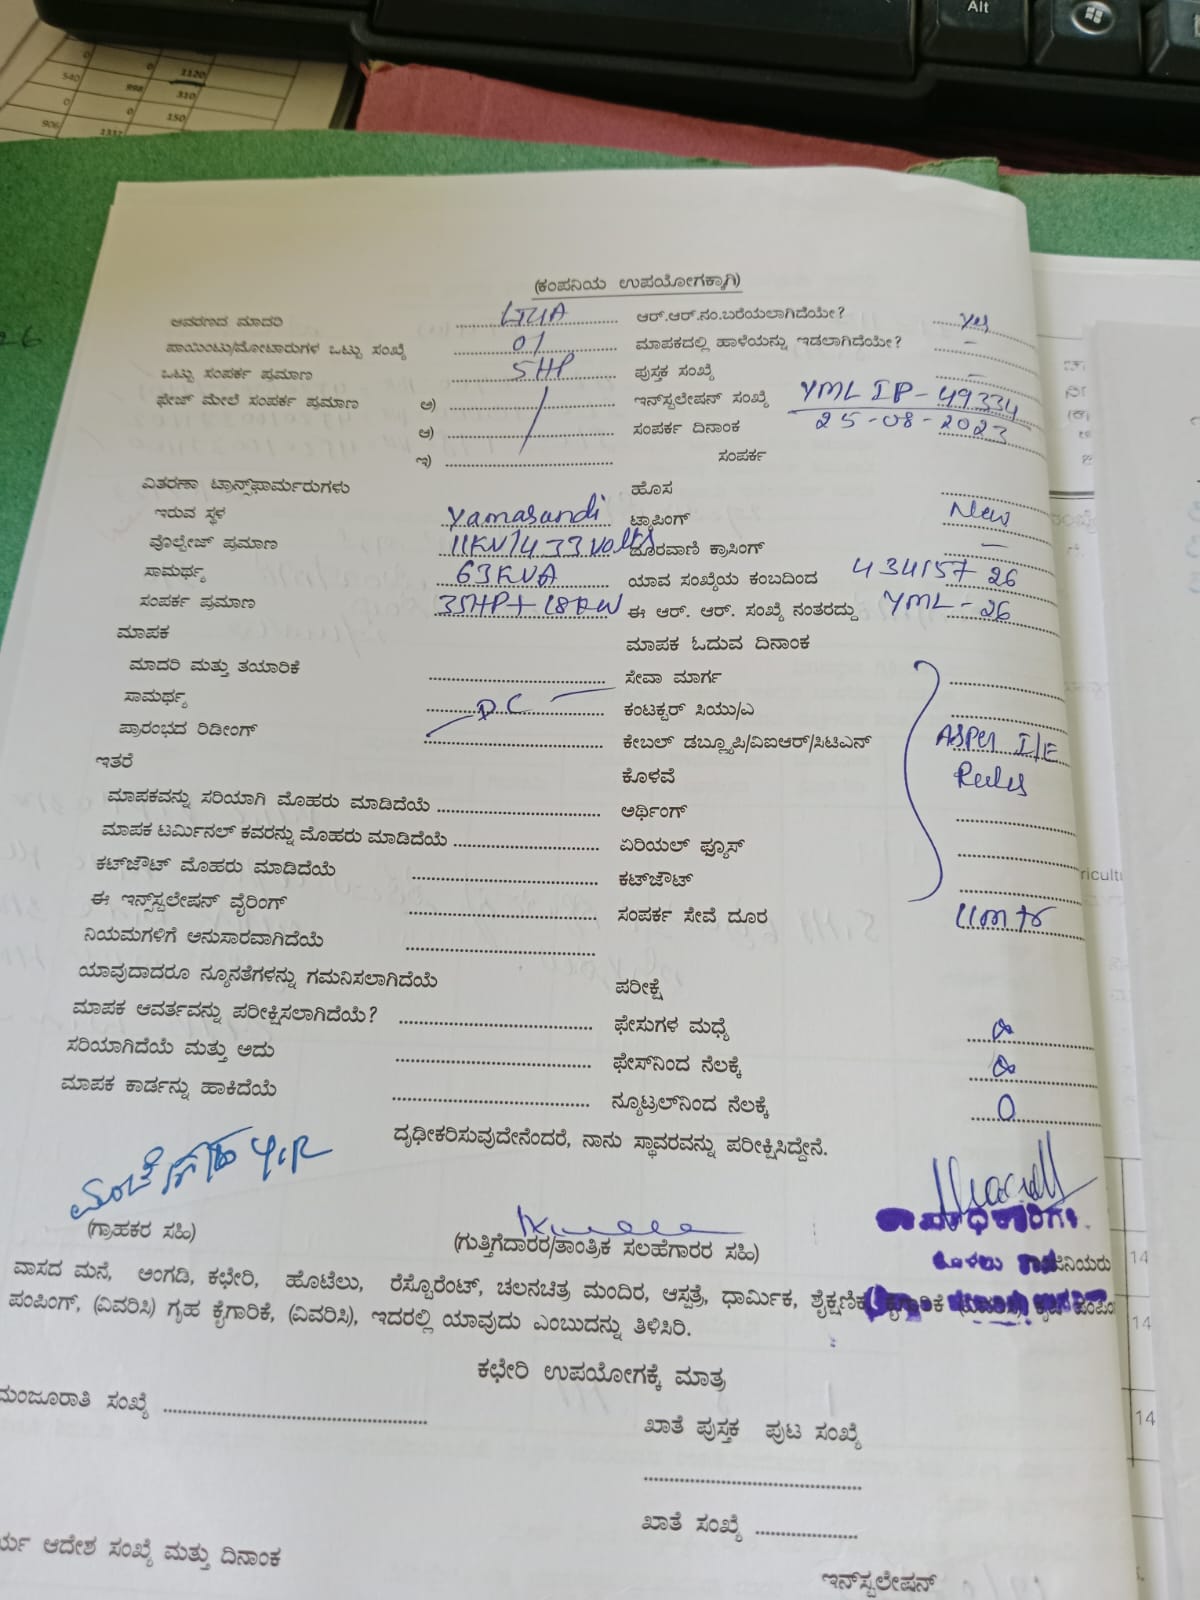 Alt
0 0 1120
540 998 310
0 0 150
906 1337
26
(ಕಂಪನಿಯ ಉಪಯೋಗಕ್ಕಾಗಿ)
ಆವರಣದ ಮಾದರಿ ಆರ್.ಆರ್.ನಂ.ಬರೆಯಲಾಗಿದೆಯೇ? yes
ಪಾಯಿಂಟು/ಮೋಟಾರುಗಳ ಒಟ್ಟು ಸಂಖ್ಯೆ 01 ಮಾಪಕದಲ್ಲಿ ಹಾಳೆಯನ್ನು ಇಡಲಾಗಿದೆಯೇ? -
ಒಟ್ಟು ಸಂಪರ್ಕ ಪ್ರಮಾಣ 5HP ಪುಸ್ತಕ ಸಂಖ್ಯೆ -
ಫೇಜ್ ಮೇಲೆ ಸಂಪರ್ಕ ಪ್ರಮಾಣ ಅ) ಇನ್‌ಸ್ಟಲೇಷನ್ ಸಂಖ್ಯೆ YML IP-49334
ಆ) ಸಂಪರ್ಕ ದಿನಾಂಕ 25-08-2023
ಇ) ಸಂಪರ್ಕ
ವಿತರಣಾ ಟ್ರಾನ್ಸ್‌ಫಾರ್ಮರುಗಳು ಹೊಸ
ಇರುವ ಸ್ಥಳ Yamasandi ಟ್ಯಾಪಿಂಗ್ New
ವೊಲ್ಟೇಜ್ ಪ್ರಮಾಣ 11KV/433 Volts ದೂರವಾಣಿ ಕ್ರಾಸಿಂಗ್ -
ಸಾಮರ್ಥ್ಯ 63KVA ಯಾವ ಸಂಖ್ಯೆಯ ಕಂಬದಿಂದ 434157 26
ಸಂಪರ್ಕ ಪ್ರಮಾಣ 35HP+18KW ಈ ಆರ್. ಆರ್. ಸಂಖ್ಯೆ ನಂತರದ್ದು YML-26
ಮಾಪಕ ಮಾಪಕ ಓದುವ ದಿನಾಂಕ
ಮಾದರಿ ಮತ್ತು ತಯಾರಿಕೆ ಸೇವಾ ಮಾರ್ಗ
ಸಾಮರ್ಥ್ಯ DC ಕಂಟಕ್ಟರ್ ಸಿಯು/ಎ
ಪ್ರಾರಂಭದ ರಿಡೀಂಗ್ ಕೇಬಲ್ ಡಬ್ಲ್ಯೂಪಿ/ವಿಐಆರ್/ಸಿಟಿಎನ್ Asper I/E
ಇತರೆ ಕೊಳವೆ Rules
ಮಾಪಕವನ್ನು ಸರಿಯಾಗಿ ಮೊಹರು ಮಾಡಿದೆಯೆ ಅರ್ಥಿಂಗ್
ಮಾಪಕ ಟರ್ಮಿನಲ್ ಕವರನ್ನು ಮೊಹರು ಮಾಡಿದೆಯೆ ಏರಿಯಲ್ ಫ್ಯೂಸ್
ಕಟ್‌ಜೌಟ್ ಮೊಹರು ಮಾಡಿದೆಯೆ ಕಟ್‌ಜೌಟ್
ಈ ಇನ್ಸ್‌ಸ್ಟಲೇಷನ್ ವೈರಿಂಗ್ ಸಂಪರ್ಕ ಸೇವೆ ದೂರ 11mtr
ನಿಯಮಗಳಿಗೆ ಅನುಸಾರವಾಗಿದೆಯೆ
ಯಾವುದಾದರೂ ನ್ಯೂನತೆಗಳನ್ನು ಗಮನಿಸಲಾಗಿದೆಯೆ ಪರೀಕ್ಷೆ
ಮಾಪಕ ಆವರ್ತವನ್ನು ಪರೀಕ್ಷಿಸಲಾಗಿದೆಯೆ? ಫೇಸುಗಳ ಮಧ್ಯೆ ∞
ಸರಿಯಾಗಿದೆಯೆ ಮತ್ತು ಅದು ಫೇಸ್‌ನಿಂದ ನೆಲಕ್ಕೆ ∞
ಮಾಪಕ ಕಾರ್ಡನ್ನು ಹಾಕಿದೆಯೆ ನ್ಯೂಟ್ರಲ್‌ನಿಂದ ನೆಲಕ್ಕೆ 0
ದೃಢೀಕರಿಸುವುದೇನೆಂದರೆ, ನಾನು ಸ್ಥಾವರವನ್ನು ಪರೀಕ್ಷಿಸಿದ್ದೇನೆ.
(ಗ್ರಾಹಕರ ಸಹಿ) (ಗುತ್ತಿಗೆದಾರರ/ತಾಂತ್ರಿಕ ಸಲಹೆಗಾರರ ಸಹಿ)
ವಾಸದ ಮನೆ, ಅಂಗಡಿ, ಕಛೇರಿ, ಹೊಟೆಲು, ರೆಸ್ಟೊರೆಂಟ್, ಚಲನಚಿತ್ರ ಮಂದಿರ, ಆಸ್ಪತ್ರೆ, ಧಾರ್ಮಿಕ, ಶೈಕ್ಷಣಿಕ
ಪಂಪಿಂಗ್, (ವಿವರಿಸಿ) ಗೃಹ ಕೈಗಾರಿಕೆ, (ವಿವರಿಸಿ), ಇದರಲ್ಲಿ ಯಾವುದು ಎಂಬುದನ್ನು ತಿಳಿಸಿರಿ.
ಕಛೇರಿ ಉಪಯೋಗಕ್ಕೆ ಮಾತ್ರ
ಮಂಜೂರಾತಿ ಸಂಖ್ಯೆ ಖಾತೆ ಪುಸ್ತಕ ಪುಟ ಸಂಖ್ಯೆ
ಖಾತೆ ಸಂಖ್ಯೆ
ಆದೇಶ ಸಂಖ್ಯೆ ಮತ್ತು ದಿನಾಂಕ
ಇನ್‌ಸ್ಟಲೇಷನ್
14
14
14